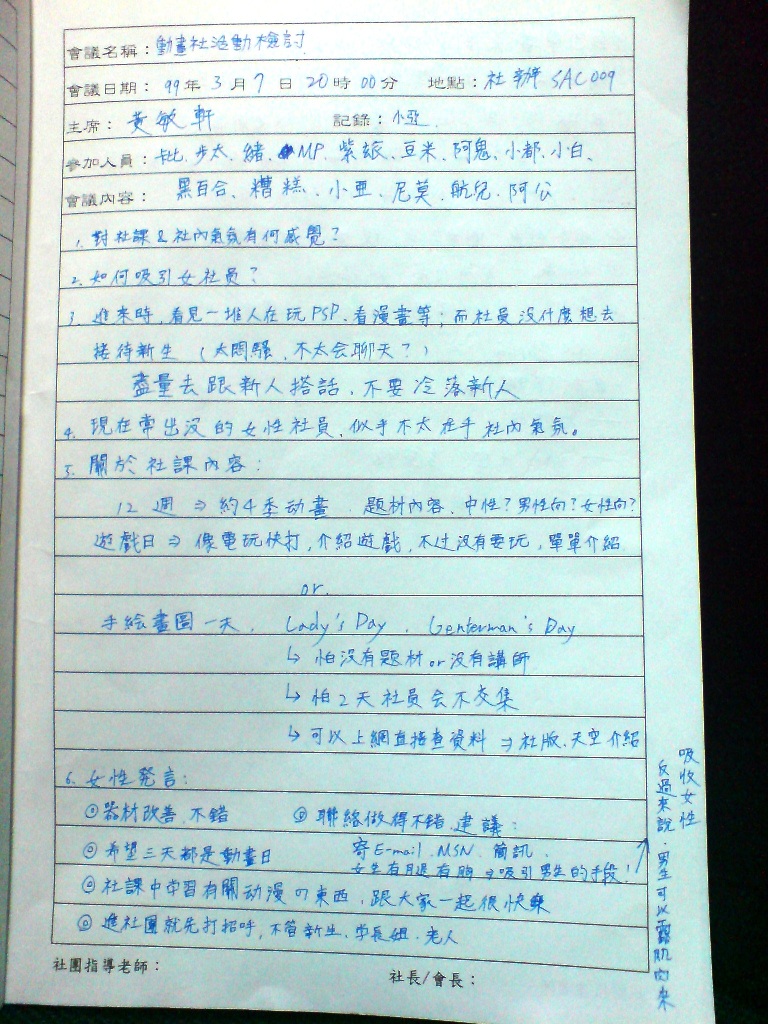 會議名稱：動畫社活動檢討
會議日期：99年3月7日20時00分 地點：社辦 SAC009
主席：黃敏軒 記錄：小亞
參加人員：卡比、步太、緒、MP、紫綾、豆米、阿鬼、小都、小白、
會議內容：黑百合、糟糕、小亜、尼莫、航兒、阿公
1. 對社課&社內氣氛有何感覺？
2. 如何吸引女社員？
3. 進來時，看見一堆人在玩PSP、看漫畫等；而社員沒什麼想去
接待新生（太悶騷、不太会聊天？）
盡量去跟新人搭話，不要冷落新人
4. 現在常出沒的女性社員，似乎不太在乎社內氣氛。
5. 關於社課內容：
12 週 ⇒ 約4季动畫 題材內容、中性？男性向？女性向？
遊戲日 ⇒ 像電玩快打，介紹遊戲，不过沒有要玩，單單介紹
or.
手絵畫圖一天． Lady's Day . Genterman's Day
↳ 怕沒有題材or沒有講師
↳ 怕2天社員会不交集
↳ 可以上網直接查資料 ⇒ 社版、天空介紹
6. 女性発言：
◎器材改善，不錯 ◎聯絡做得不錯，建議：
◎希望三天都是動畫日 寄E-mail、MSN、簡訊．
女生有月退有時 ⇒ 吸引男生的手段！
◎社課中学習有關动漫の東西，跟大家一起很快樂
◎進社團就先打招呼，不管新生、学長姐、老人
吸收女性
反過來說，男生可以露肌肉來
社團指導老師：
社長/會長：